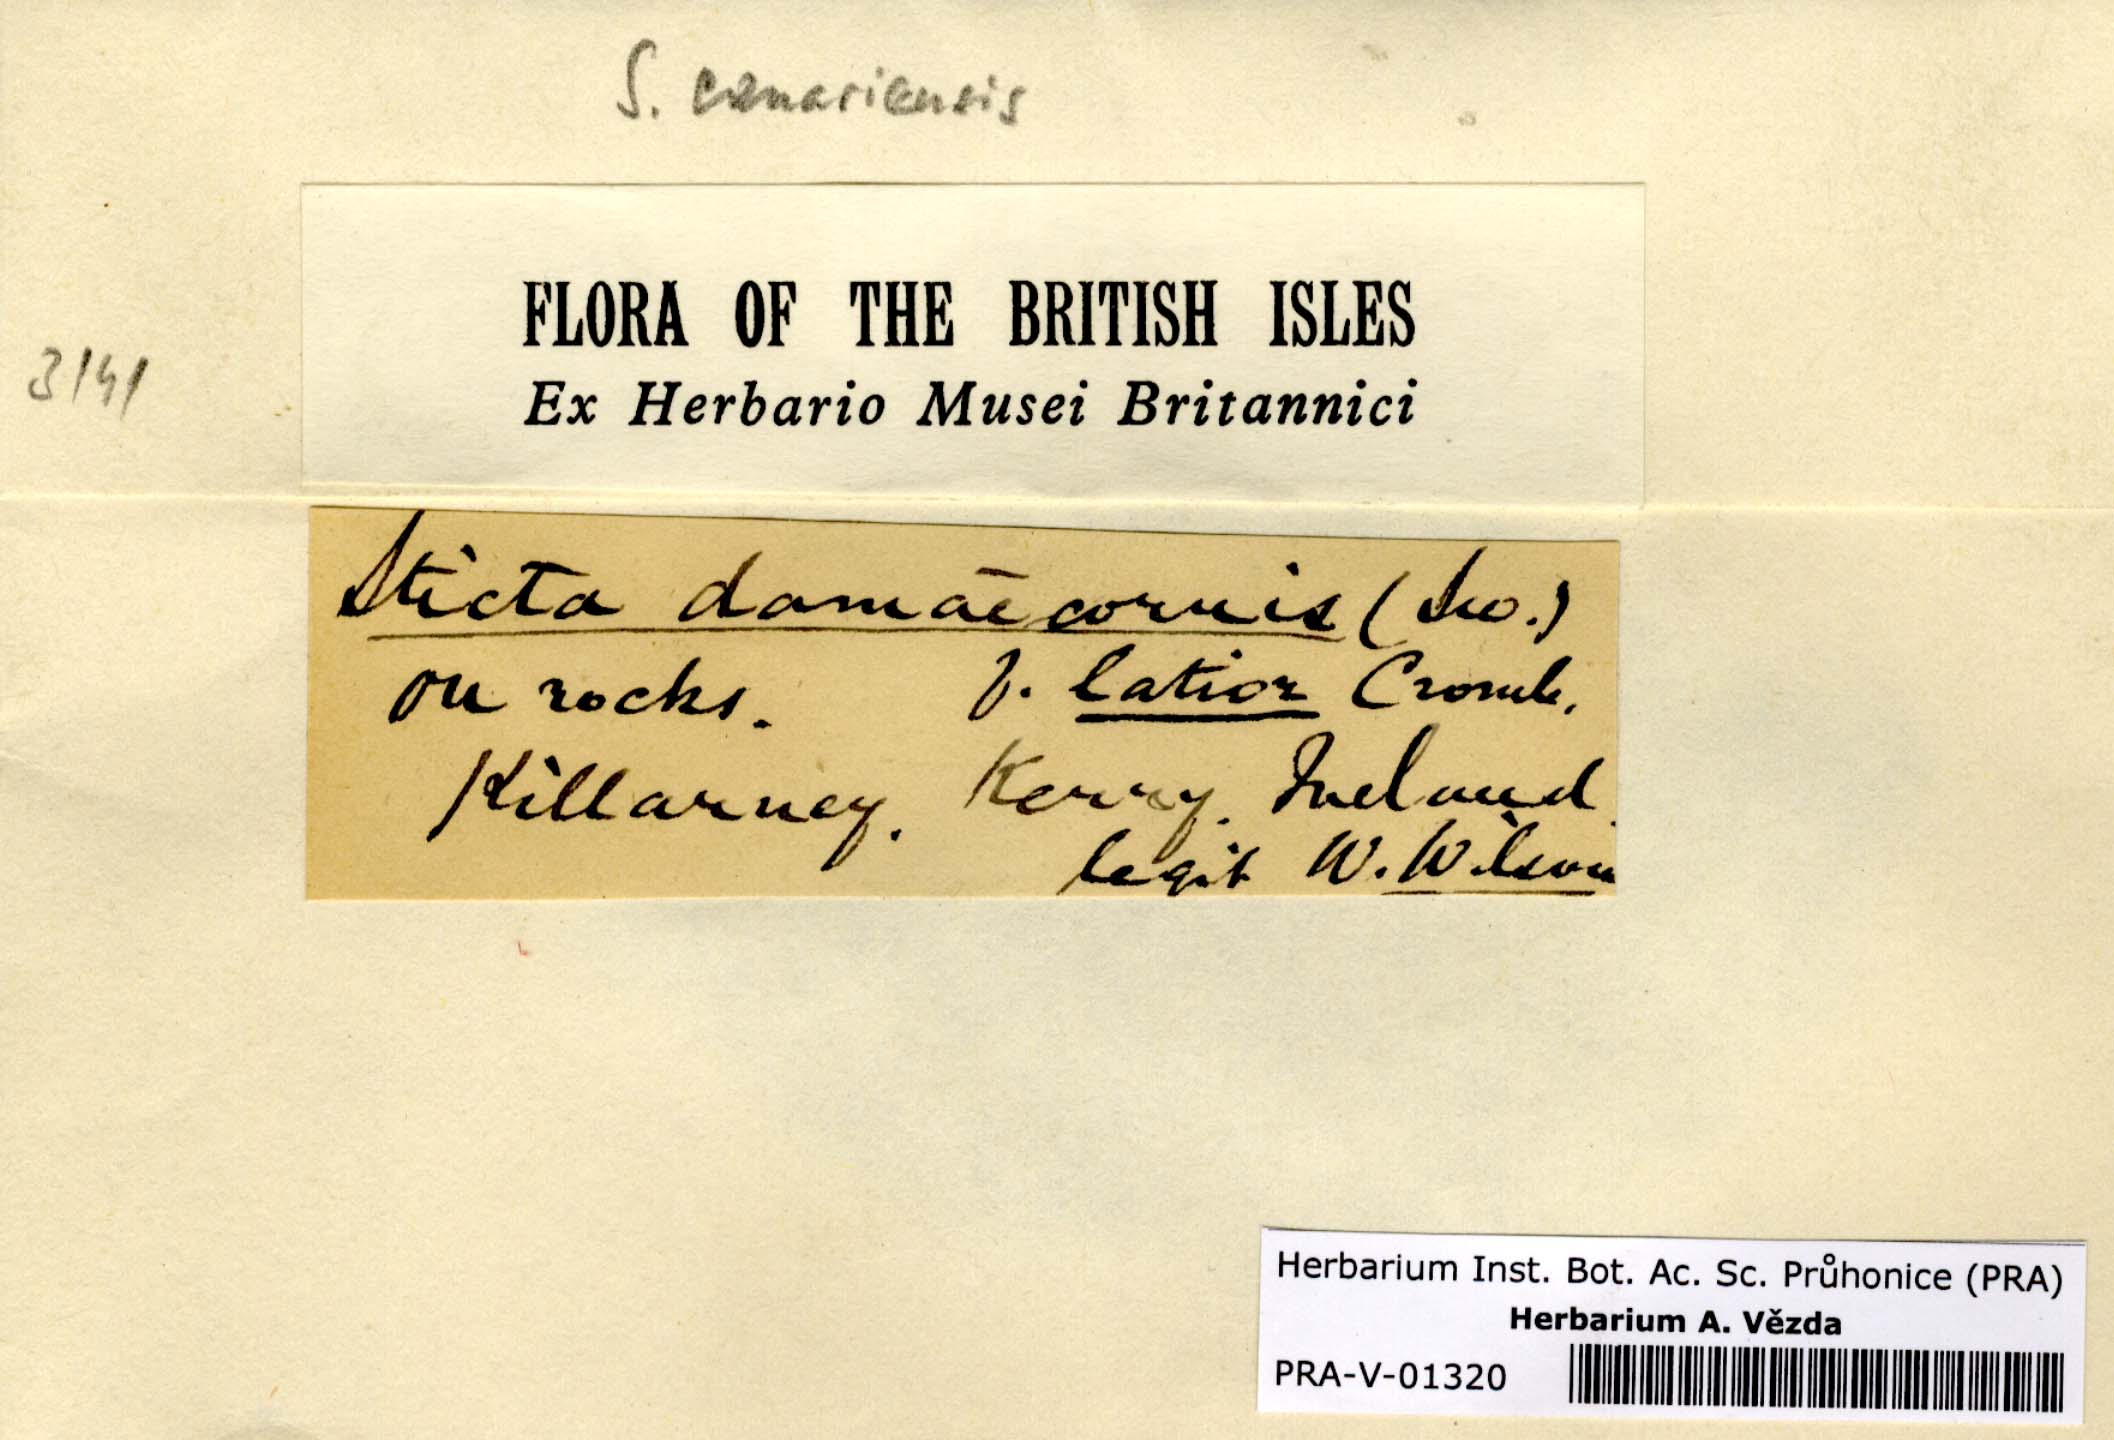 S. canariensis
FLORA OF THE BRITISH ISLES
Ex Herbario Musei Britannici
3141
Sticta damaecornis (Sw.)
on rocks. f. latior Cromb.
Killarney. Kerry. Ireland.
legit W. Wilson
Herbarium Inst. Bot. Ac. Sc. Průhonice (PRA)
Herbarium A. Vězda
PRA-V-01320